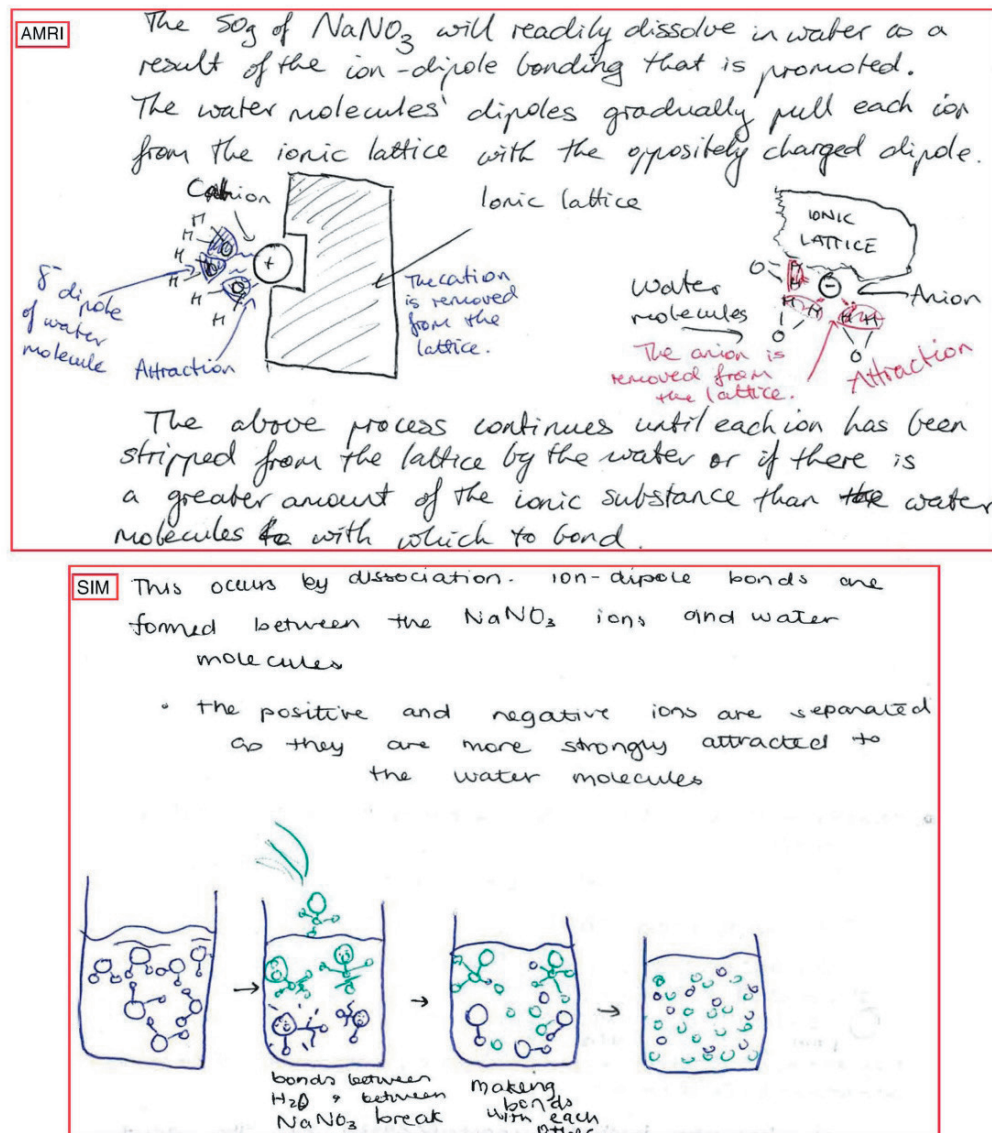 AMRI
The 50g of NaNO₃ will readily dissolve in water as a
result of the ion-dipole bonding that is promoted.
The water molecules' dipoles gradually pull each ion
from the ionic lattice with the oppositely charged dipole.
Cathion
Ionic lattice
H
H
H
H
H
+
δ⁻ dipole
of water
molecule
Attraction
The cation
is removed
from the
lattice.
IONIC
LATTICE
O
H
H
-
Anion
Water
molecules
H H
H H
O
O
The anion is
removed from
the lattice.
Attraction
The above process continues until each ion has been
stripped from the lattice by the water or if there is
a greater amount of the ionic substance than the water
molecules to with which to bond.
SIM
This occurs by dissociation. ion-dipole bonds are
formed between the NaNO₃ ions and water
molecules
• the positive and negative ions are separated
as they are more strongly attracted to
the water molecules
bonds between
H₂O & between
NaNO₃ break
making
bonds
with each
other